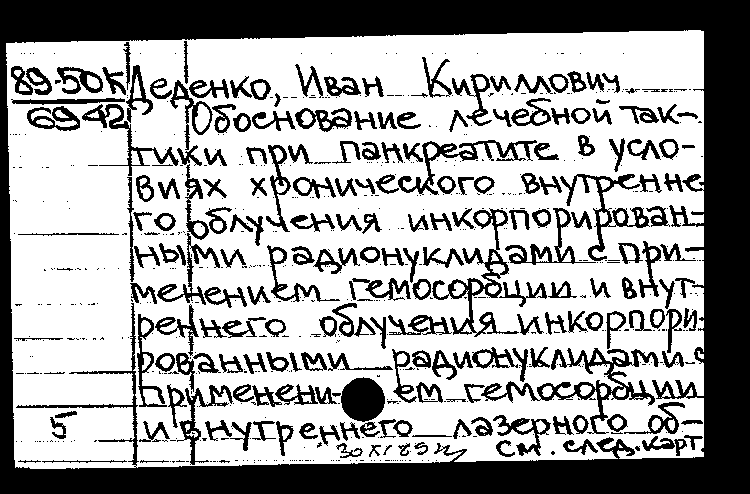 89-50К Деденко, Иван Кириллович.
6942 Обоснование лечебной так-
тики при панкреатите в усло-
виях хронического внутренне
го облучения инкорпорирован-
ными радионуклидами с при-
менением гемосорбции и внут-
реннего облучения инкорпори-
рованными радионуклидами с
применени- ем гемосорбции
5 и внутреннего лазерного об-
см. след. карт.